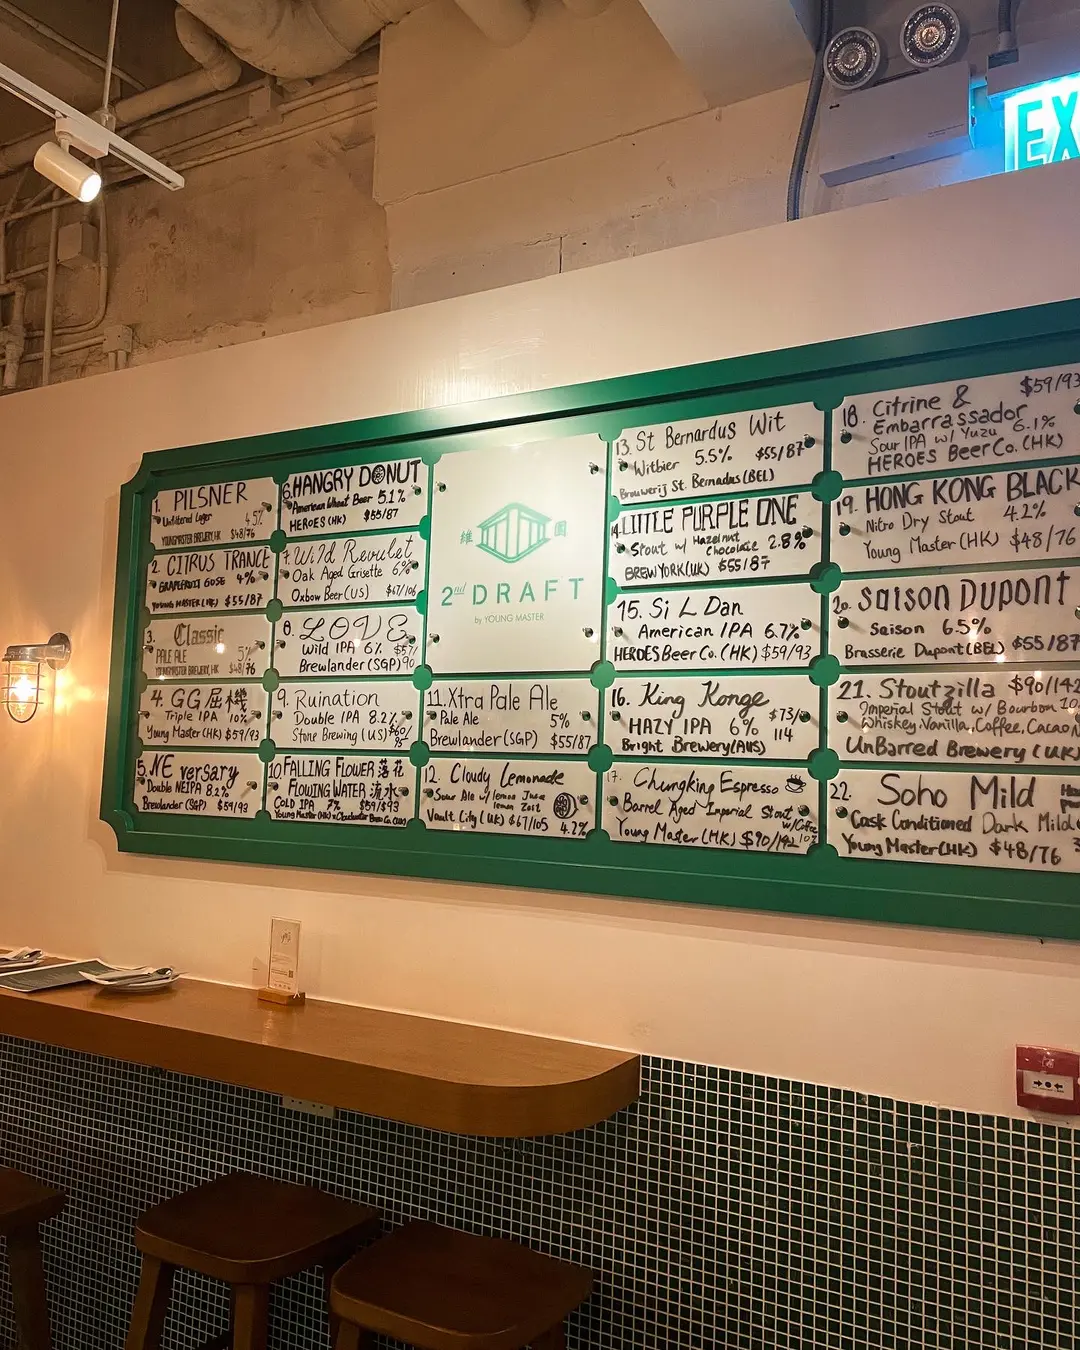 EX
1. PILSNER
Unfiltered Lager 4.5%
YOUNGMASTER BREWERY, HK $48/76
2. CITRUS TRANCE
GRAPEFRUIT GOSE 4%
YOUNG MASTER (HK) $55/87
3. Classic
PALE ALE 5%
YOUNGMASTER BREWERY, HK $48/76
4. GG 屈機
Triple IPA 10%
Young Master (HK) $59/93
5. NE versary
Double NEIPA 8.2%
Brewlander (SGP) $59/93
6. HANGRY DONUT
American Wheat Beer 5.1%
HEROES (HK) $55/87
7. Wild Revulet
Oak Aged Grisette 6%
Oxbow Beer (US) $67/106
8. LOVE
Wild IPA 6% $57/
Brewlander (SGP) 90
9. Ruination
Double IPA 8.2%
Stone Brewing (US) $60/
95
10. FALLING FLOWER 落花
FLOWING WATER 流水
COLD IPA 7% $59/$93
Young Master (HK) x Cloudwater Brew Co.
維 園
2nd DRAFT
by YOUNG MASTER
11. Xtra Pale Ale
Pale Ale 5%
Brewlander (SGP) $55/87
12. Cloudy Lemonade
Sour Ale w/ lemon Juice
lemon Zest
Vault City (UK) $67/105 4.2%
13. St Bernardus Wit
Witbier 5.5% $55/87
Brouwerij St. Bernadus (BEL)
14. LITTLE PURPLE ONE
Stout w/ Hazelnut
Chocolate 2.8%
BREW YORK (UK) $55/87
15. Si L Dan
American IPA 6.7%
HEROES Beer Co. (HK) $59/93
16. King Konge
HAZY IPA 6% $73/
114
Bright Brewery (AUS)
17. Chungking Espresso
Barrel Aged Imperial Stout
w/ Coffee
Young Master (HK) $90/142 10%
18. Citrine & $59/93
Embarrassador
Sour IPA w/ Yuzu 6.1%
HEROES Beer Co. (HK)
19. HONG KONG BLACK
Nitro Dry Stout 4.2%
Young Master (HK) $48/76
20. SAISON DUPONT
Saison 6.5%
Brasserie Dupont (BEL) $55/87
21. Stoutzilla $90/142
Imperial Stout w/ Bourbon 10
Whiskey, Vanilla, Coffee, Cacao N
UnBarred Brewery (UK)
22. Soho Mild
Cask Conditioned Dark Mild
Young Master (HK) $48/76